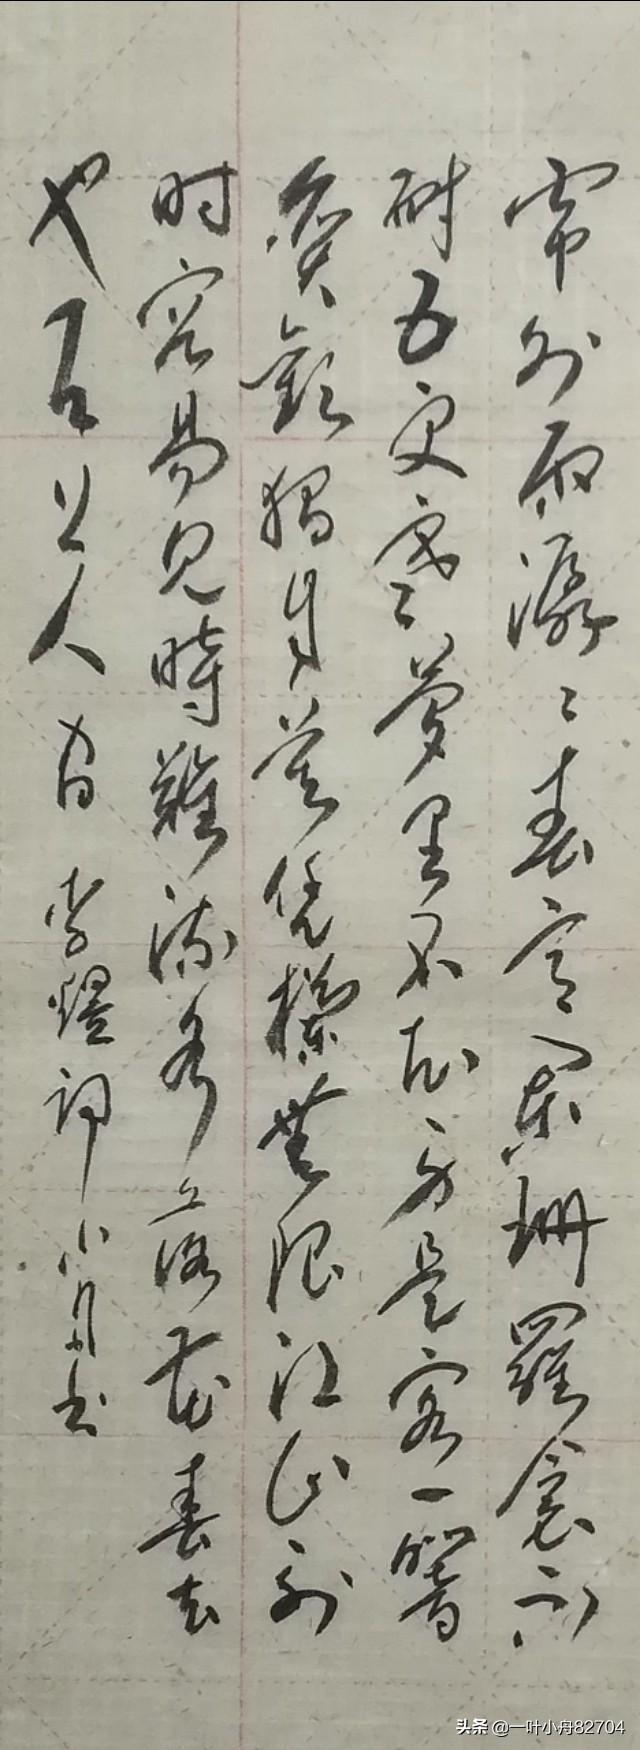 帘外雨潺々春意阑珊羅衾不
耐五更寒夢里不知身是客一
贪歡獨自莫凭欄無限江山别
时容易见時難流水落花春去
也天上人间 李煜詞 小舟书
头条 @一叶小舟82704